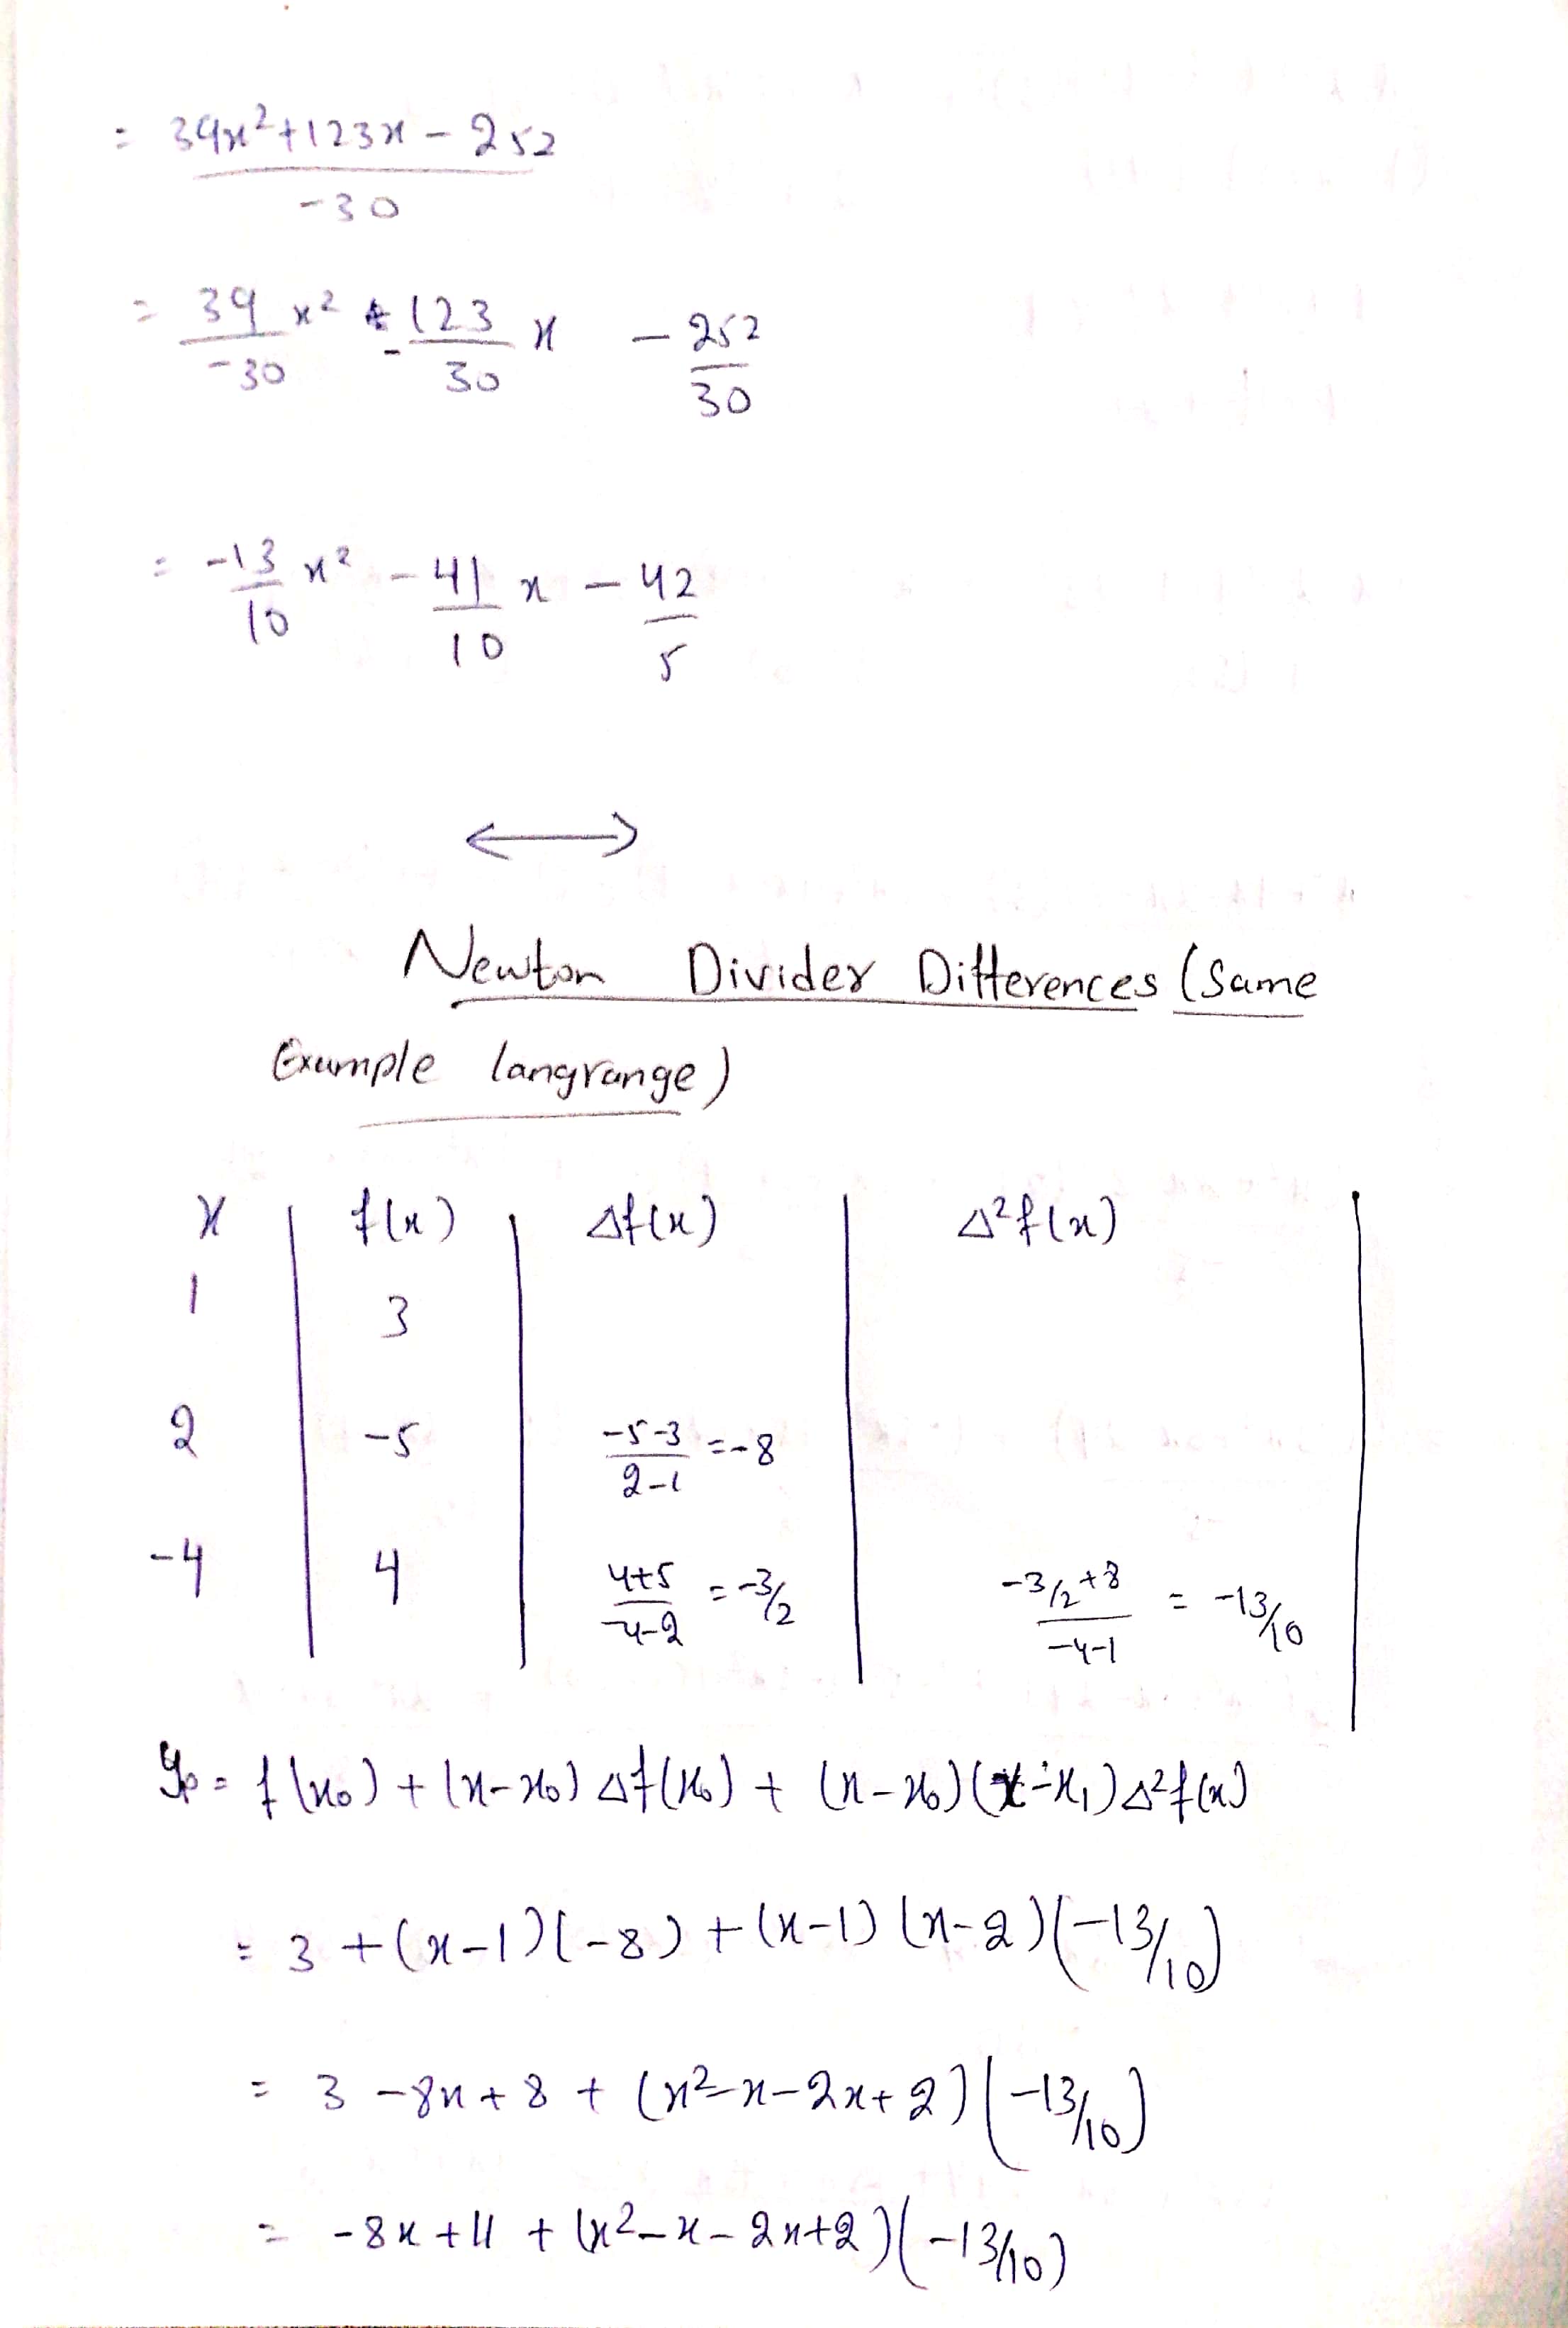 = 39x²+123x - 252 / -30
= 39/-30 x² - 123/30 x - 252/30
= -13/10 x² - 41/10 x - 42/5
Newton Divider Differences (Same
Example langrange)
x | f(x) | Δf(x) | Δ²f(x) |
1 | 3
2 | -5 | -5-3/2-1 = -8
-4 | 4 | 4+5/-4-2 = -3/2 | -3/2+8/-4-1 = -13/10
yp = f(x₀) + (x-x₀) Δf(x₀) + (x-x₀)(x-x₁) Δ²f(x)
= 3 + (x-1)(-8) + (x-1)(x-2)(-13/10)
= 3 - 8x + 8 + (x²-x-2x+2)(-13/10)
= -8x + 11 + (x²-x-2x+2)(-13/10)